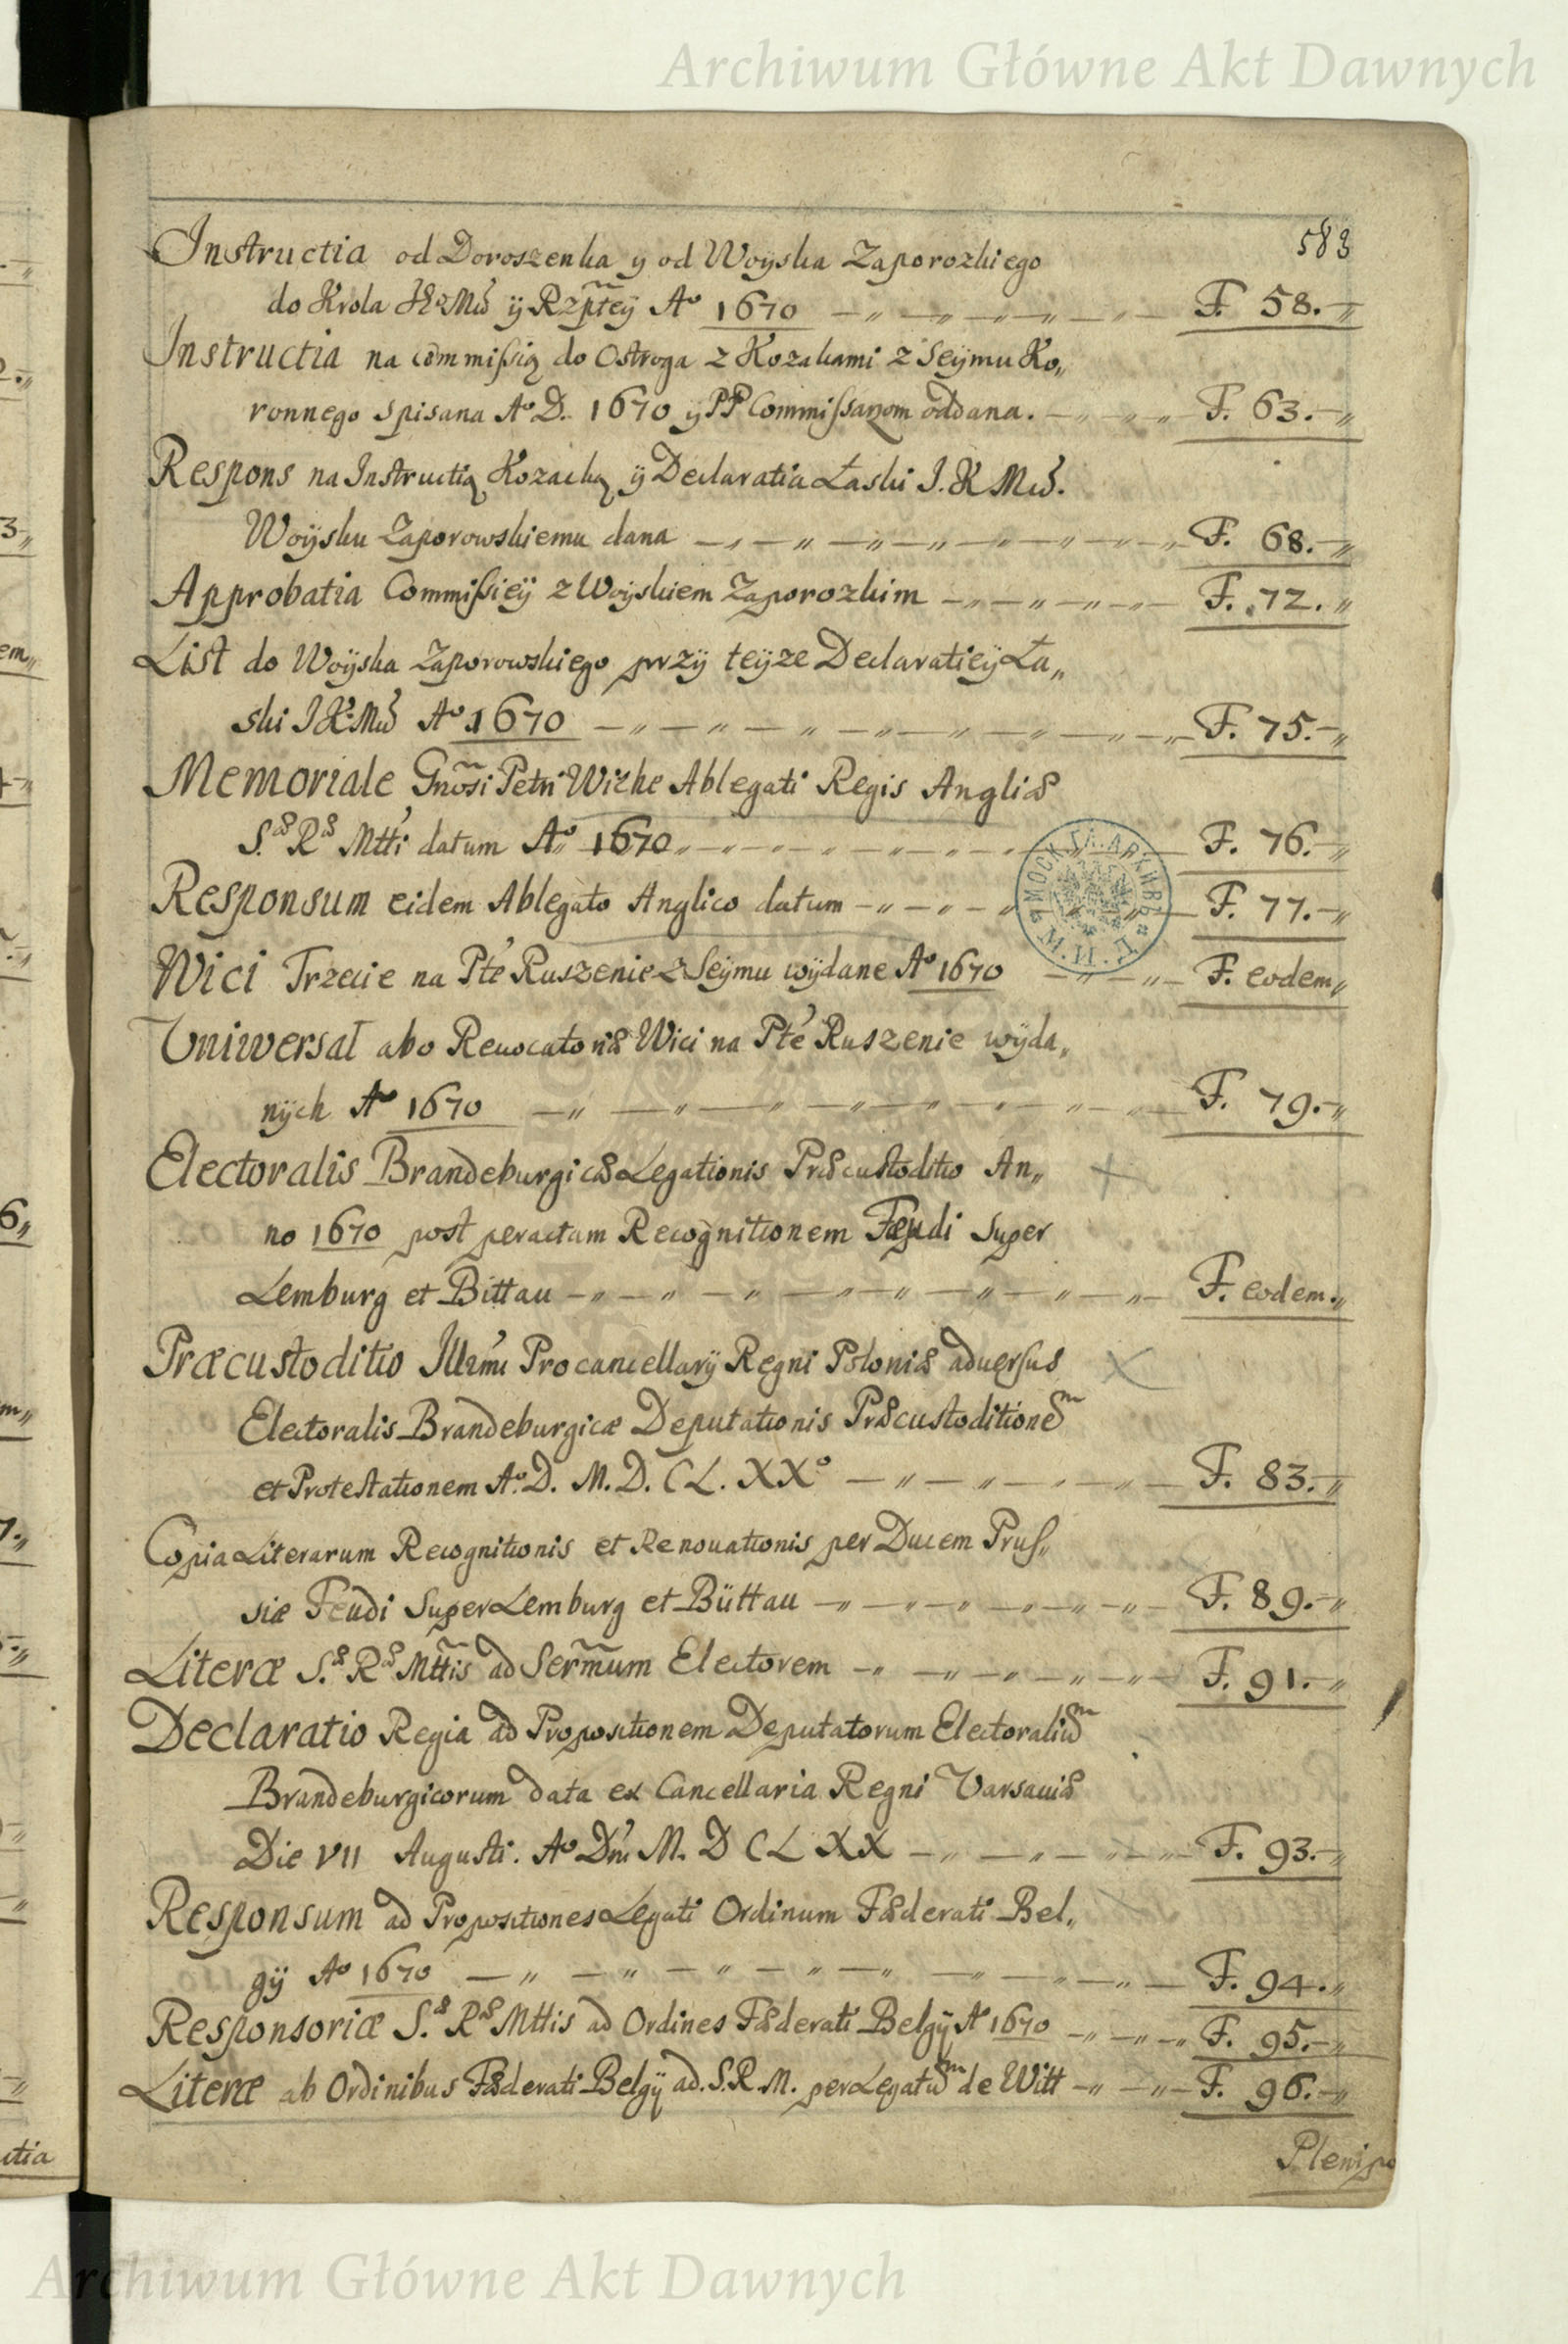 Archiwum Główne Akt Dawnych
583
Instructia od Doroszenka y od Woyska Zaporozkiego
do Krola JKMci ÿ Rzptey A° 1670 F. 58.
Instructia na Commissią do Ostroga z Kozakami z Seÿmu Ko„
ronnego spisana A° D. 1670 ÿ PP Commissarzom oddana. F. 63.
Respons na Instructią Kozacką ÿ Declaratia Łaski J. K Mci.
Woÿsku Zaporowskiemu dana F. 68.
Approbatia Commissieÿ z Woyskiem Zaporozkim F. 72.
List do Woÿska Zaporowskiego przÿ teÿze Declaratieÿ Ła„
ski J K Mci A° 1670 F. 75.
Memoriale Gnosi Petri Wiche Ablegati Regis Angliæ
S.æ Ræ Mtti datum A° 1670 F. 76.
Responsum eidem Ablegato Anglico datum F. 77.
Wici Trzecie na Pte Ruszenie z Seÿmu wÿdane A° 1670 F. eodem
Vniwersał abo Reuocatoriæ Wici na Pte Ruszenie wÿda„
nÿch A° 1670 F. 79.
Electoralis Brandeburgicæ Legationis Præcustoditio An„
no 1670 post peractam Recognitionem Feudi Super
Lemburg et Bittau F. eodem.
Præcustoditio Illmi Procancellarÿ Regni Poloniæ aduersus
Electoralis Brandeburgicæ Deputationis Præcustoditionem
et Protestationem A° D. M. D. C L. XX° F. 83.
Copia Literarum Recognitionis et Renouationis per Ducem Prus„
siæ Feudi Super Lemburg et Büttau F. 89.
Literæ S.æ Ræ Mttis ad Sermum Electorem F. 91.
Declaratio Regia ad Propositionem Deputatorum Electoralium
Brandeburgicorum data ex Cancellaria Regni Varsauiæ
Die VII Augusti. A° Dni M. D C L XX F. 93.
Responsum ad Propositiones Legati Ordinum Fæderati Bel„
gÿ A° 1670 F. 94.
Responsoriæ S.æ Ræ Mttis ad Ordines Fæderati Belgÿ A° 1670 F. 95.
Literæ ab Ordinibus Fæderati Belgÿ ad. S. R. M. per Legatum de Witt F. 96.
Plenipo
Archiwum Główne Akt Dawnych